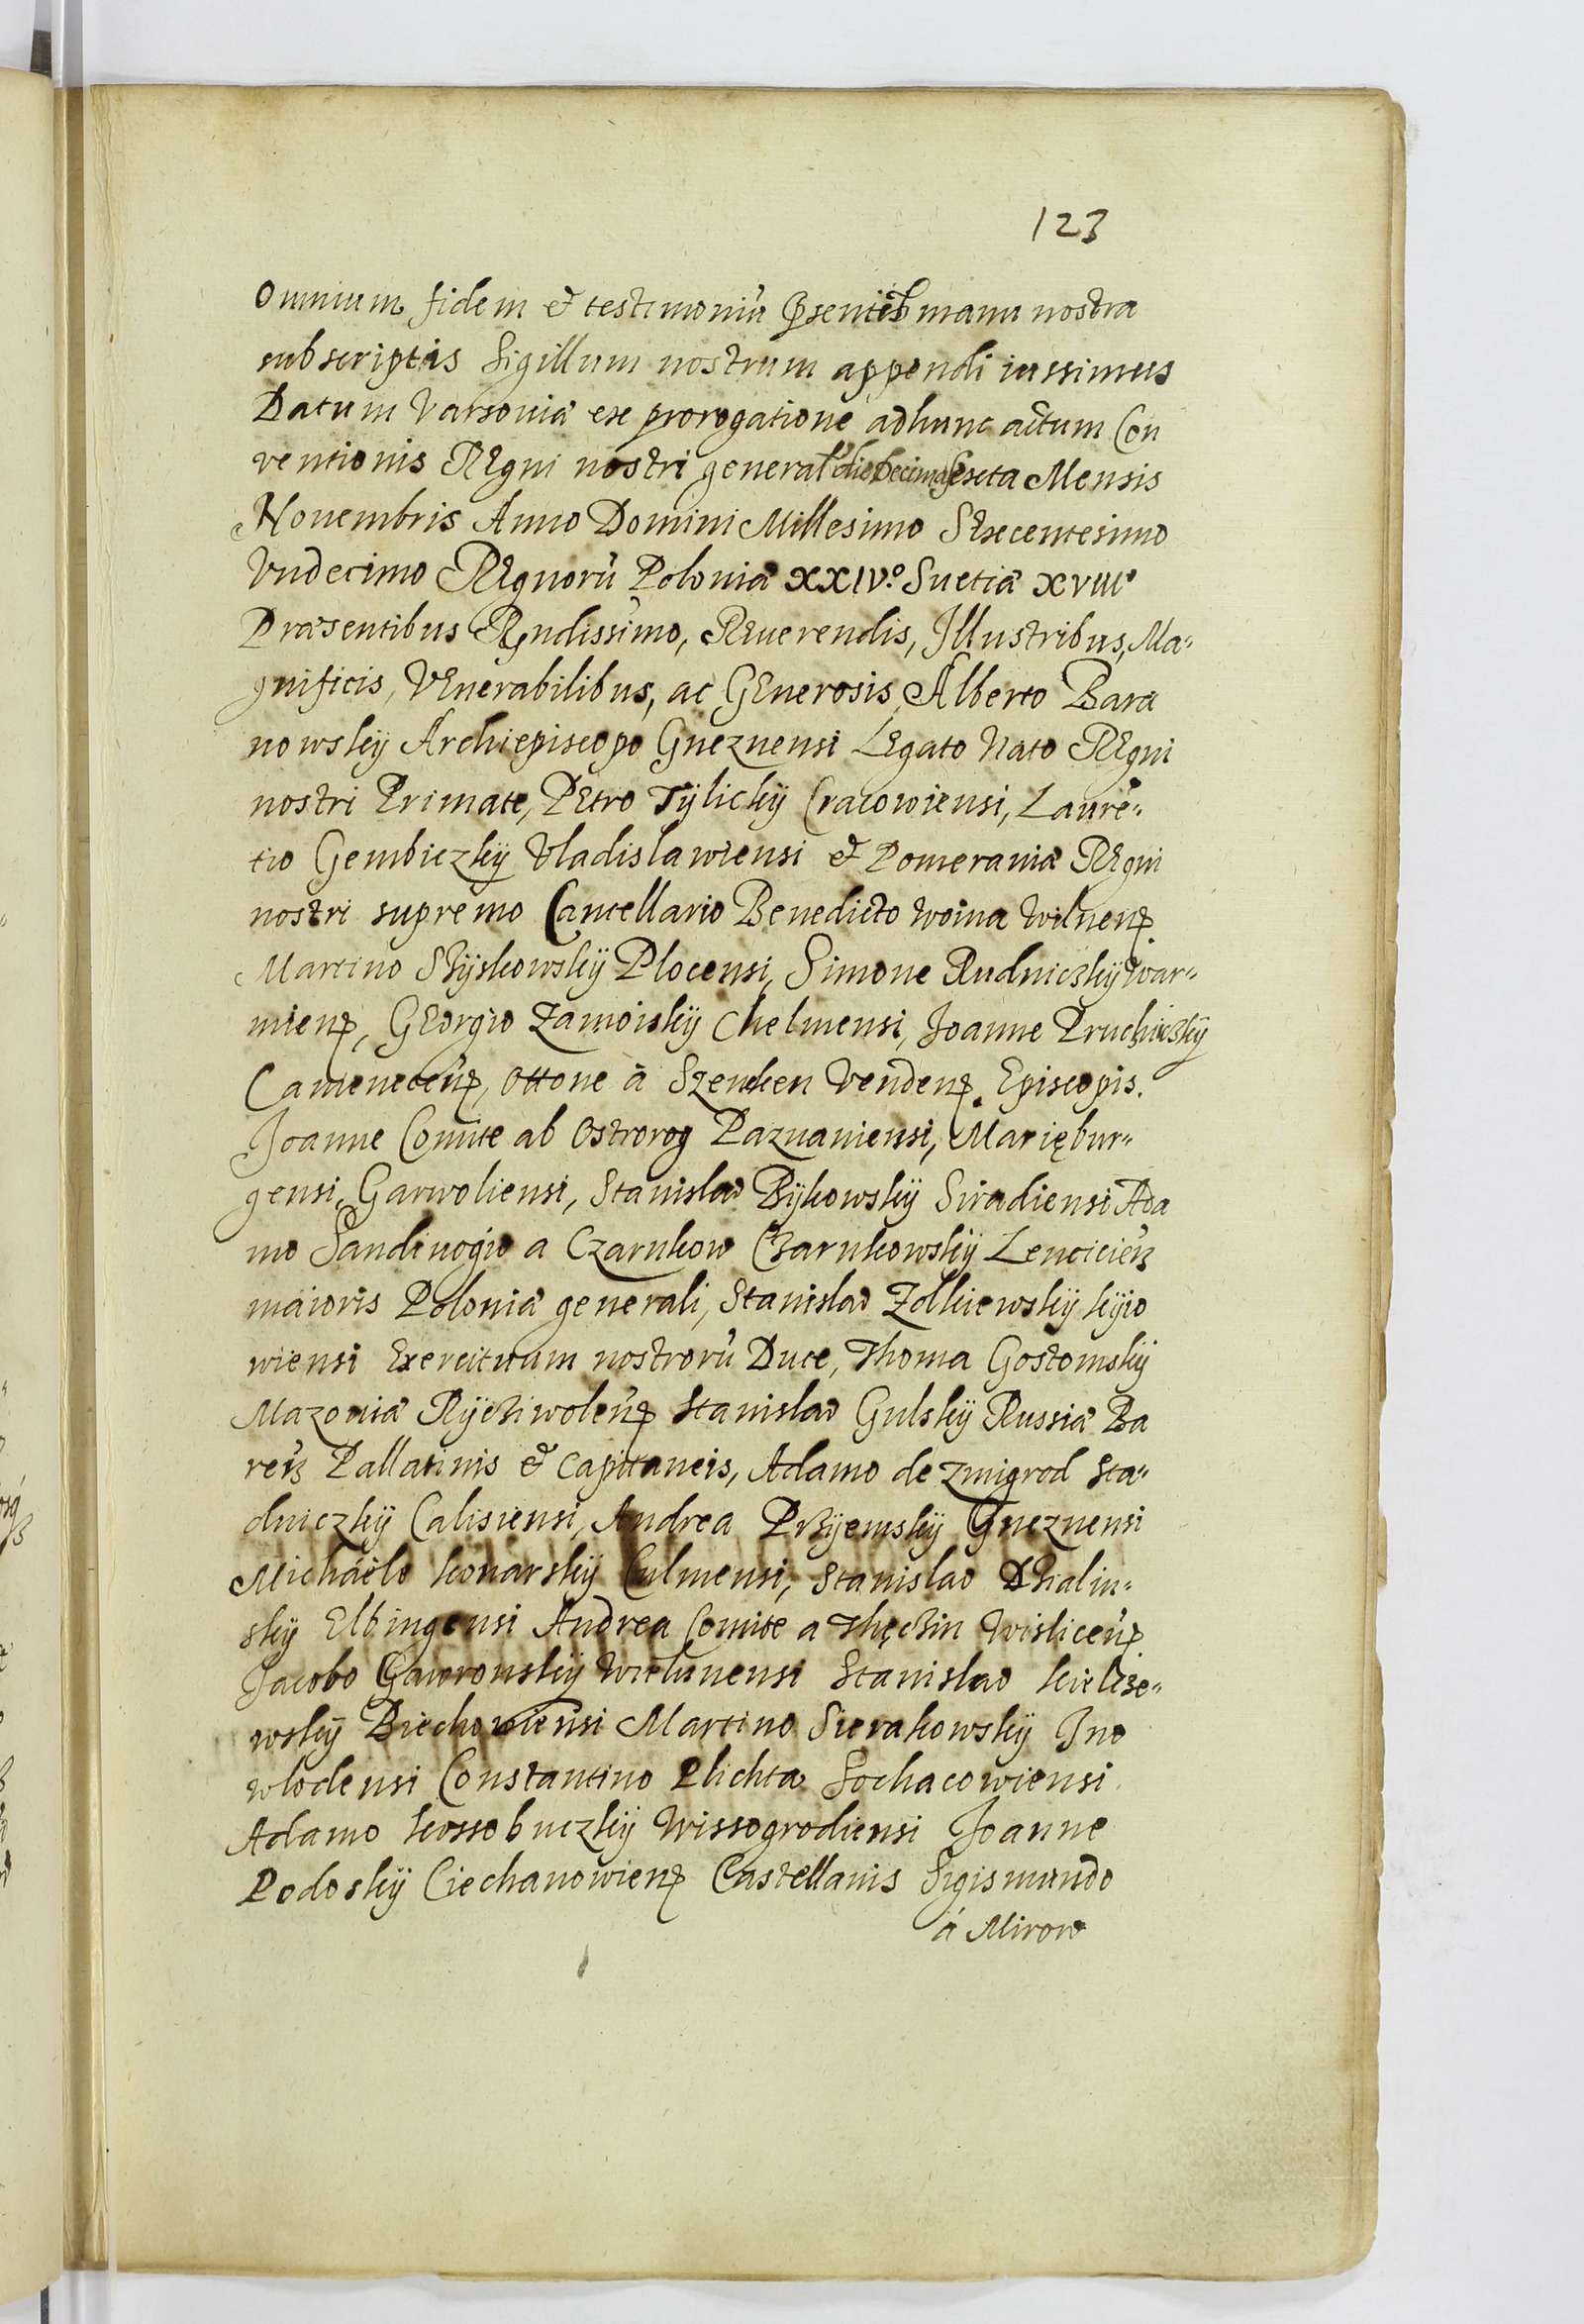 123
Omnium fidem et testimoniũ p̱sentib manu nostra
subscriptis Sigillum nostrum appendi iussimus
Datum Varsoviæ ex prorogatione ad hunc actum Con
ventionis REgni nostri general die decima sexta Mensis
Novembris Anno Domini Millesimo SExcentesimo
Vndecimo REgnorũ Poloniæ XXIV.º Suetiæ XVIIIº
Præsentibus Rñdissimo, REuerendis, Illustribus, Ma-
gnificis, VEnerabilibus, ac GEnerosis, Alberto Bara
nowskÿ Archiepiscopo Gneznensi LEgato Nato REgni
nostri Primate, PEtro Tÿlickÿ Cracowiensi, Laurẽ-
tio Gembiczkÿ Vladislawiensi et Pomeraniæ REgni
nostri supremo Cancellario Benedicto Woina Wilnen̄
Martino SzÿskowskÿPlocensi, Simone Rudniczkÿ War-
mien̄, GEorgio Zamoiskÿ Chelmensi, Joanne Pruchniczkÿ
Cameneceñ, Ottone à Szenken Venden̄. Episcopis.
Joanne Comite ab Ostrorog Paznaniensi, Mariębur-
gensi, Garwoliensi, Stanislao Bÿkowskÿ Siradiensi Ada
mo Sandivogio a Czarnkow Czarnkowskÿ Lenciciẽ
maioris Poloniæ generali, Stanislao Zolkiewskÿ kÿio
wiensi Exercituum nostrorũ Duce, Thoma Gostomskÿ
Mazoviæ Rÿcziwoleñ Stanislao Gulskÿ Russiæ Ba
reñ Pallatinis et Capitaneis, Adamo de Zmigrod Sta-
dniczkÿ Calisiensi, Andrea Przÿemskÿ Gneznensi
Michäële konarskÿ Culmensi, Stanislao Dzialin-
skÿ Elbingensi Andrea Comite a Thęczin Wisliceñ
Jacobo Gawronskÿ Wielunensi Stanislao kielcze-
wskÿ Biechowiensi Martino Sierakowskÿ Ino
wlodensi Constantino Plichta Sochacowiensi
Adamo kossobuczkÿ Wissogrodiensi Joanne
Podoskÿ Ciechanowien̄ Castellanis Sigismundo
á Mirow